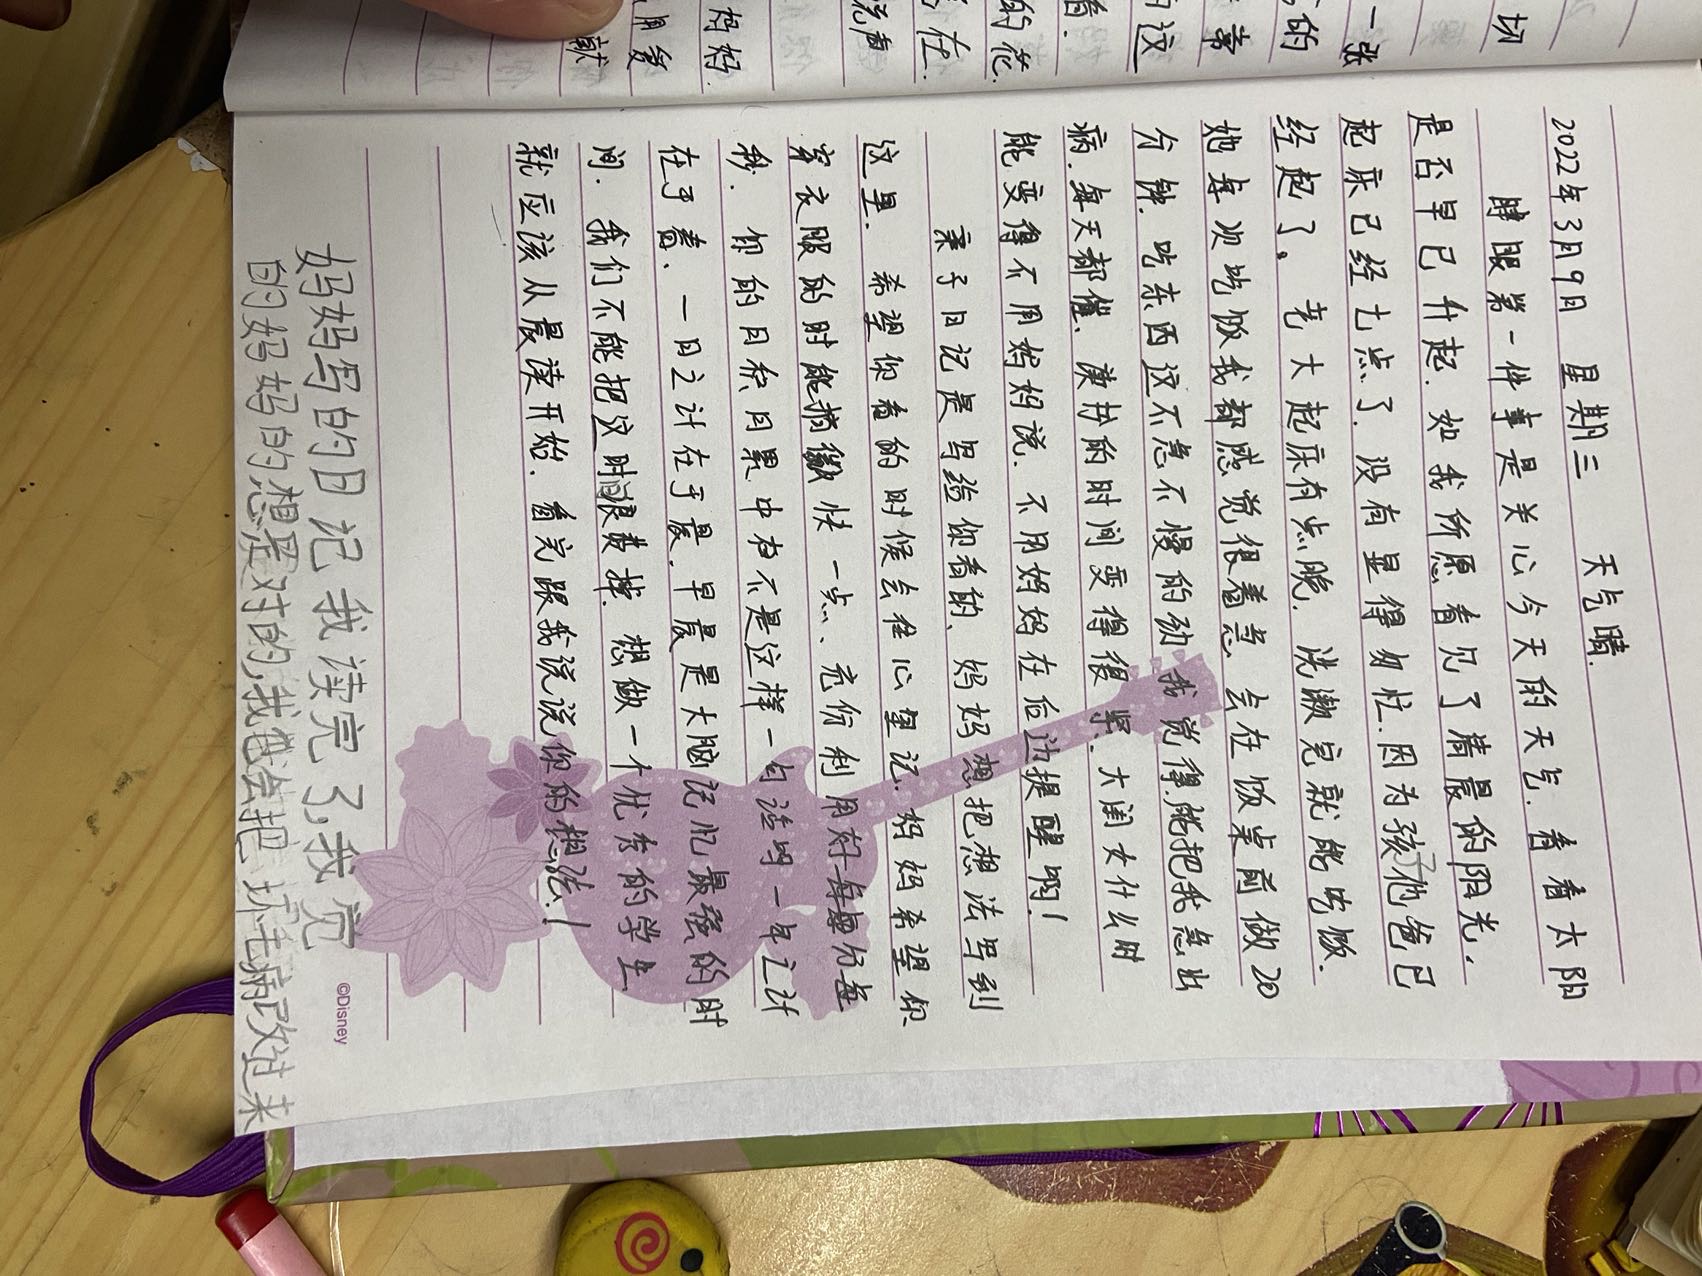 切
一张
的
常
的这
看.
的花.
在.
说声
妈妈.
用爱
献
2022年3月9日 星期三 天气晴.
睁眼第一件事是关心今天的天气.看看太阳
是否早已升起.如我所愿看见了清晨的阳光,
起床已经七点了.没有显得匆忙.因为孩子他爸已
经起了。老大起床有点晚.洗漱完就能吃饭.
她每次吃饭我都感觉很着急 会在饭桌前做20
分钟.吃东西这不急不慢的劲 我觉得能把我急出
病.每天都催、 的时间变得很 .大闺女什么时
能变得不用妈妈说.不用妈妈在后边提醒啊!
亲子日记是写给你看的、妈妈想把想法写到
这里.希望你看的时候会往心里记.妈妈希望你
穿衣服的时能稍微快一点、充份利用好每分每
秒.你的日积月累中有不是这样一句话吗一年之计
在于春、一日之计在于晨.早晨是大脑记忆最强的时
间.我们不能把这时间浪费掉.想做一个优秀的学生
就应该从晨读开始.看完跟我说说你的想法!
妈妈写的日记我读完了,我觉
的妈妈的想是对的,我也会把 坏毛病改过来
©Disney